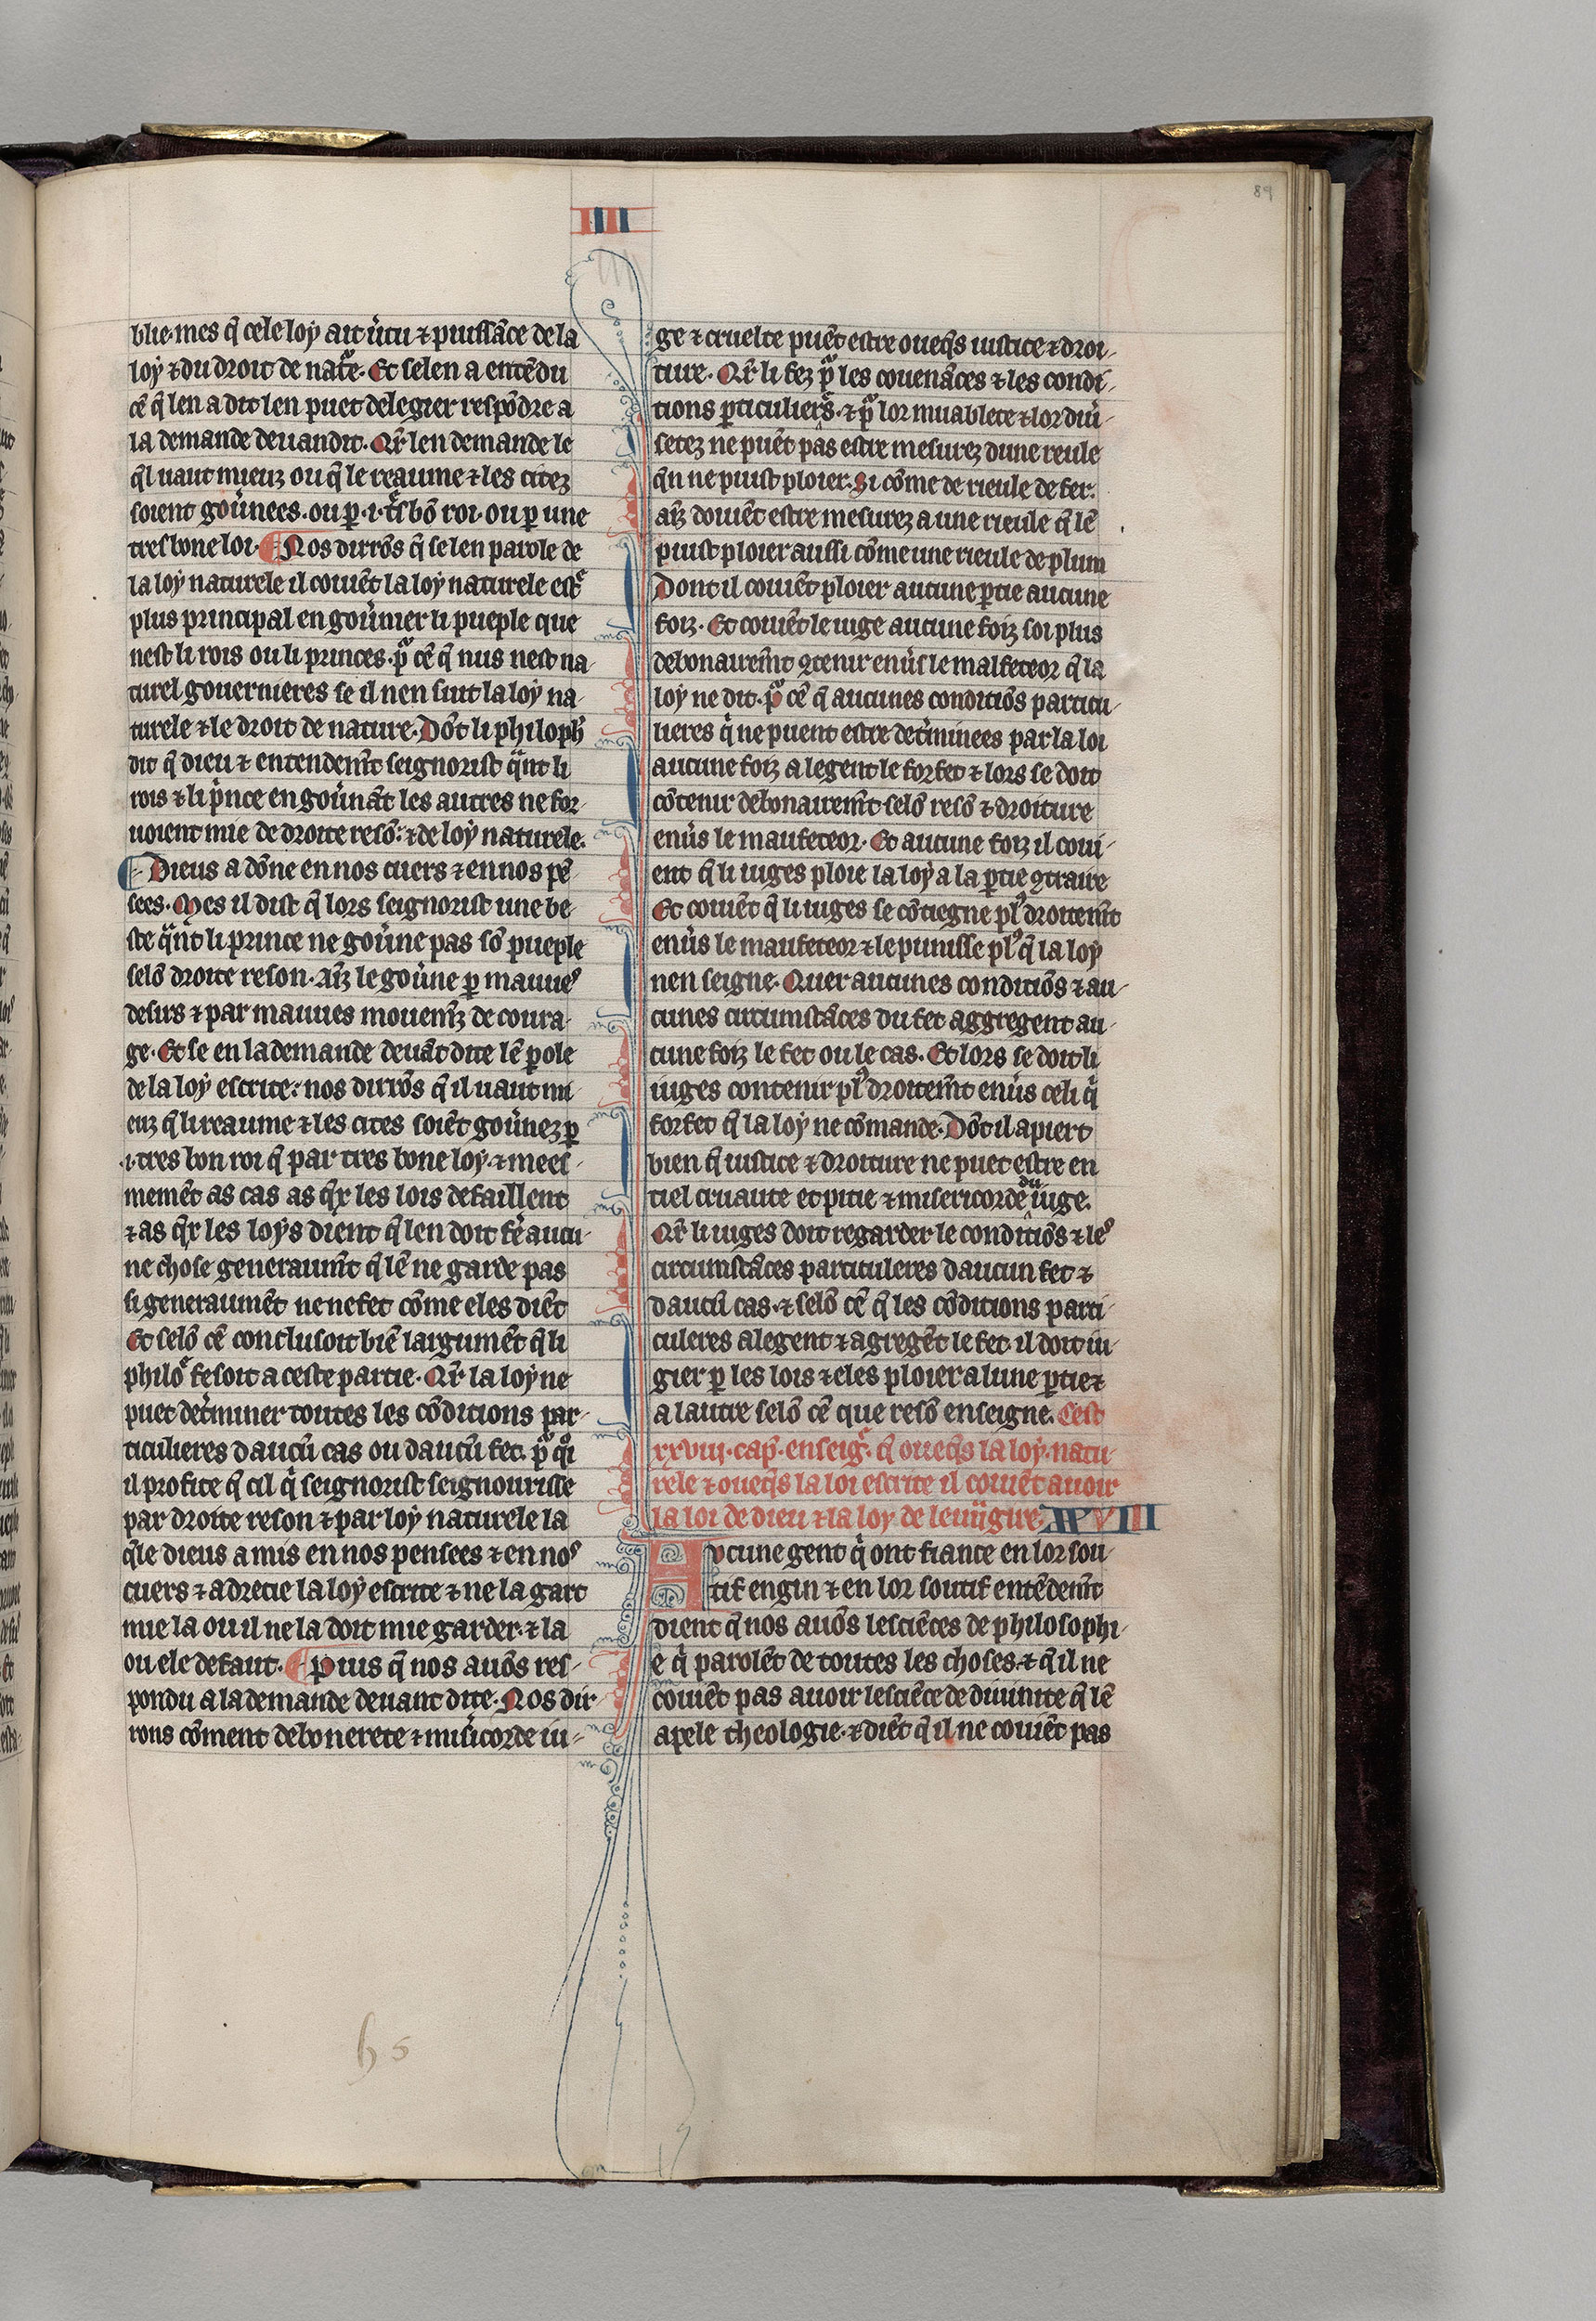 89
IIII
blie·mes q̃ cele loy ait ũtu ⁊ puissãce de la
loy ⁊ du droit de natᵃe· Et se len a entẽdu
cẽ q̃ len a dit len puet de legier respõdre a
la demande deuandit· Qr̃ len demande le
q̃l uaut mieuz ou q̃ le reaume ⁊ les citez
soient goũnees· ou ꝑ ·i· tᵉs bõ roi· ou ꝑ une
tres bone loi· ¶ Nos dirrõs q̃ se len parole de
la loy naturele il couiẽt la loy naturele estᵉ
plus principal en goũrner li pueple que
nest li rois ou li princes· pᵃ cẽ q̃ nus nest na-
turel gouernieres se il nen suit la loy na-
turele ⁊ le droit de nature· Dõt li philoph̃
dit q̃ dieu ⁊ entendem̃t seignorist qᵃnt li
rois ⁊ li pⁱnce en goũnãt les autres ne for-
uoient mie de droite resõ· ⁊ de loy naturele·
¶ Dieus a dõne en nos cuers ⁊ en nos pẽ-
sees· Mes il dist q̃ lors seignorist une be-
ste qᵃnt li prince ne goũne pas sõ pueple
selõ droite reson· Aĩz le goũne ꝑ mauueˢ
desirs ⁊ par mauues mouem̃z de coura-
ge· Et se en la demande deuãt dite lẽ ꝑole
de la loy escrite: nos dirrõs q̃ il uaut mi-
euz q̃ li reaume ⁊ les cites soiẽt goũnez ꝑ
·i· tres bon roi q̃ par tres bone loy· ⁊ mees-
memẽt as cas as q̃x les lois defaillent
⁊ as q̃x les loys dient q̃ len doit feʳ aucu-
ne chose generaum̃t q̃ lẽ ne garde pas
si generaumẽt ne ne fet cõme eles diẽt
Et selõ cẽ conclusoit biẽ largumẽt q̃ li
philoᵉ fesoit a ceste partie· Qr̃ la loy ne
puet det̃miner toutes les cõditions par-
ticulieres daucũ cas ou daucũ fet· pᵃ qⁱ
il profite q̃ cil qⁱ seignorist seignourisse
par droite reson ⁊ par loy naturele la
q̃le dieus a mis en nos pensees ⁊ en noˢ
cuers ⁊ adrecie la loy escrite ⁊ ne la gart
mie la ou il ne la doit mie garder· ⁊ la
ou ele defaut· ¶ Puis q̃ nos auõs res-
pondu a la demande deuant dite· Nos dir
rons cõment debonerete ⁊ mis̃icorde iu-
ge ⁊ cruelte puẽt estre oueq̃s iustice ⁊ droi-
ture· Qr̃ li fez pᵃ les couenãces ⁊ les condi-
tions ꝑticulierᵉs· ⁊ pᵃ lor muablete ⁊ lor diũ-
setez ne puẽt pas estre mesurez dune reule
q̃n ne puist ploier· Si cõme de rieule de fer·
aĩz douiẽt estre mesurez a une rieule q̃ lẽ
puist ploier aussi cõme une rieule de plum
Dont il couiẽt ploier aucune ꝑtie aucune
foiz· Et couiẽt le iuge aucune foiz soi plus
debonairem̃t ꝯtenir enũs le malfeteor q̃ la
loy ne dit· pᵃ cẽ q̃ aucunes conditiõs particu-
lieres qⁱ ne puent estre det̃minees par la loi
aucune foiz alegent le forfet ⁊ lors se doit
cõtenir debonairem̃t selõ resõ ⁊ droiture
enũs le maufeteor· Et aucune foiz il coui-
ent q̃ li iuges ploie la loy a la ꝑtie ꝯtraire
Et couiẽt q̃ li iuges se cõtiegne plꝰ droitem̃t
enũs le maufeteor ⁊ le punisse plꝰ q̃ la loy
nen seigne· Quer aucunes conditiõs ⁊ au-
cunes circumstãces du fet aggregent au-
cune foiz le fet ou le cas· Et lors se doit li
iuges contenir plꝰ droitem̃t enũs celi qⁱ
forfet q̃ la loy ne cõmande· Dõt il apiert
bien q̃ iustice ⁊ droiture ne puet estre en
tiel cruaute et pitie ⁊ misericorde du iuge·
Qr̃ li iuges doit regarder le conditiõs ⁊ leˢ
circumstãces particuleres daucun fet ⁊
daucũ cas· ⁊ selõ cẽ q̃ les cõditions parti-
culeres alegent ⁊ agregẽt le fet· il doit iu-
gier ꝑ les lois ⁊ eles ploier a lune ꝑtie ⁊
a lautre selõ cẽ que resõ enseigne· Cest
xxviii· cap̃· enseigᵉ· q̃ oueq̃s la loy· natu-
rele ⁊ oueq̃s la loi escrite il couiẽt auoir
la loi de dieu ⁊ la loy de leuũgire· XXVIII
Aucune gent qⁱ ont fiance en lor sou-
tif engin ⁊ en lor soutif entẽdem̃t
dient q̃ nos auõs lesciẽces de philosophi-
e qⁱ parolẽt de toutes les choses· ⁊ q̃ il ne
couiẽt pas auoir lesciẽce de diuinite q̃ lẽ
apele theologie· ⁊ diẽt q̃ il ne couiẽt pas
h 5